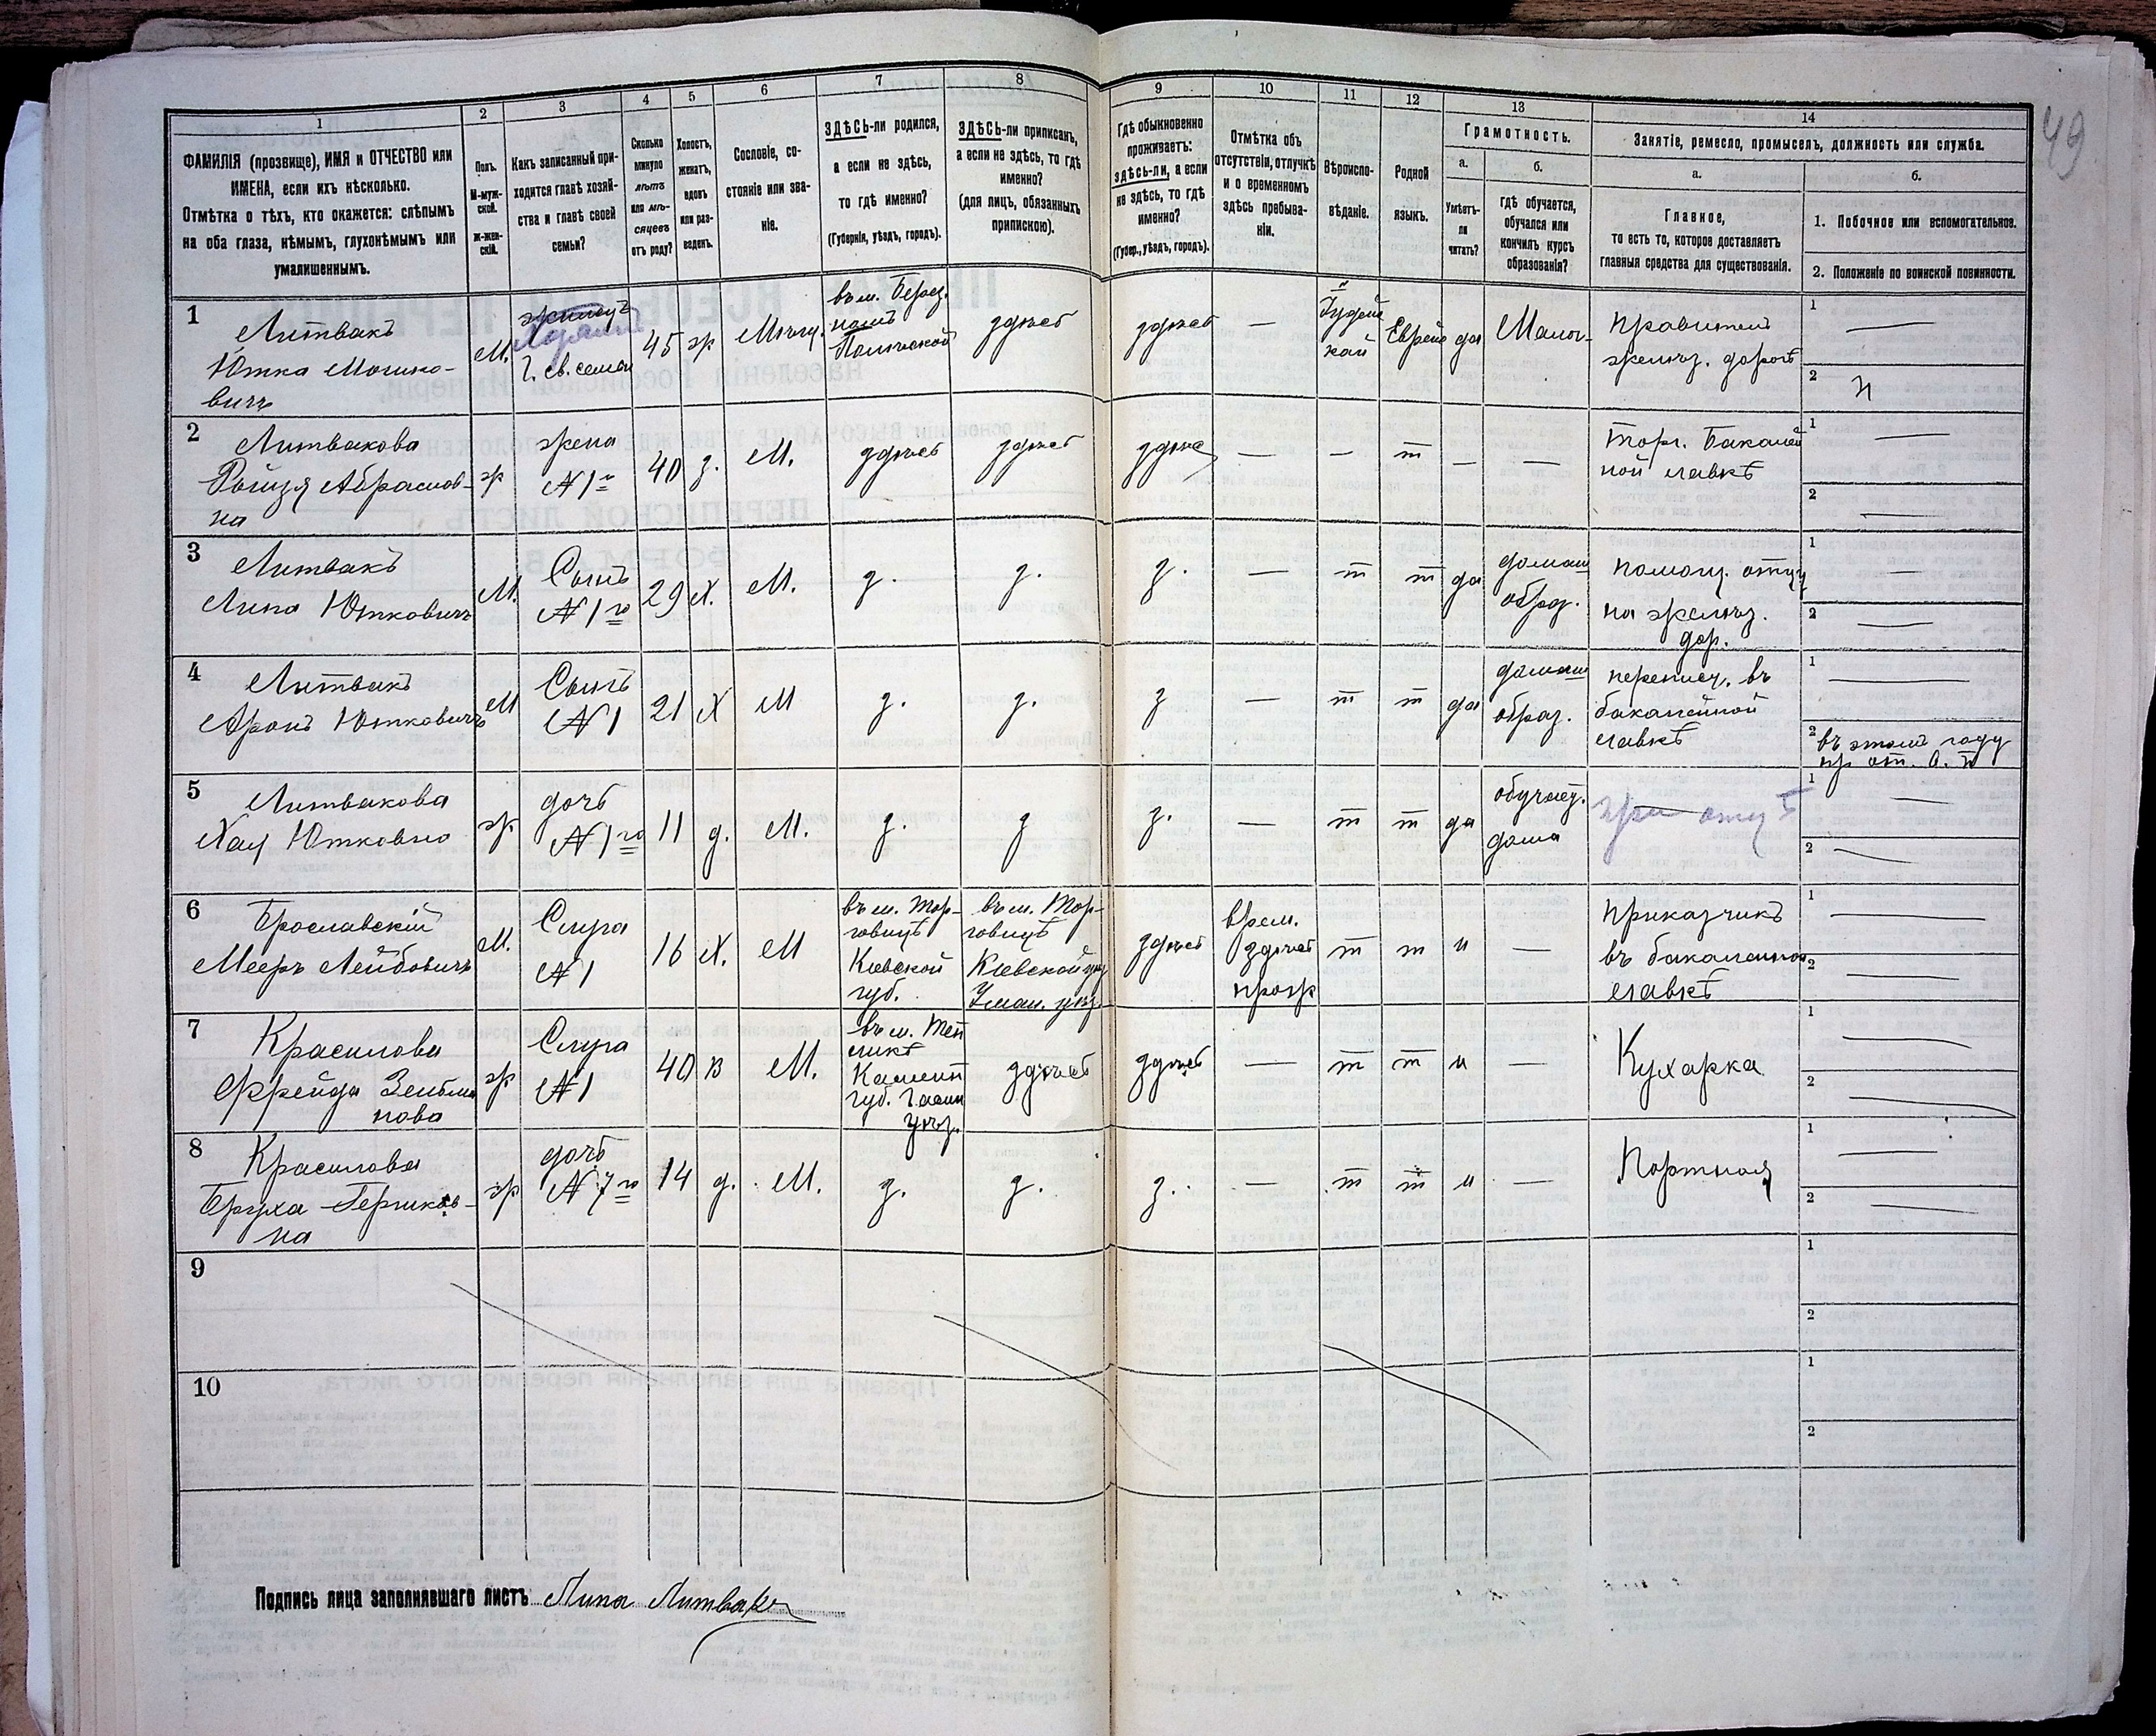 49
1
2
3
4
5
6
7
8
9
10
11
12
13
14
ФАМИЛІЯ (прозвище), ИМЯ и ОТЧЕСТВО или
ИМЕНА, если ихъ нѣсколько.
Отмѣтка о тѣхъ, кто окажется: слѣпымъ
на оба глаза, нѣмымъ, глухонѣмымъ или
умалишеннымъ.
Полъ.
М-муж-
ской.
Ж-жен-
скій.
Какъ записанный при-
ходится главѣ хозяй-
ства и главѣ своей
семьи?
Сколько
минуло
лѣтъ
или мѣ-
сяцевъ
отъ роду?
Холостъ,
женатъ,
вдовъ
или раз-
веденъ.
Сословіе, со-
стояніе или зва-
ніе.
ЗДѢСЬ-ли родился,
а если не здѣсь,
то гдѣ именно?
(Губернія, уѣздъ, городъ).
ЗДѢСЬ-ли приписанъ,
а если не здѣсь, то гдѣ
именно?
(для лицъ, обязанныхъ
припискою).
Гдѣ обыкновенно
проживаетъ:
здѣсь-ли, а если
не здѣсь, то гдѣ
именно?
(Губер., уѣздъ, городъ).
Отмѣтка объ
отсутствіи, отлучкѣ
и о временномъ
здѣсь пребыва-
ніи.
Вѣроиспо-
вѣданіе.
Родной
языкъ.
Грамотность.
а.
Умѣетъ-
ли
читать?
б.
гдѣ обучается,
обучался или
кончилъ курсъ
образованія?
Занятіе, ремесло, промыселъ, должность или служба.
а.
Главное,
то есть то, которое доставляетъ
главныя средства для существованія.
б.
1. Побочное или вспомогательное.
2. Положеніе по воинской повинности.
1
Литвакъ
Ютка Мошко-
вичъ
М.
Г. св. семьи
45
ж
Мѣщ.
въ м. Берез.
здѣсь
здѣсь
—
Іудей
ской
Еврей
да
желѣз. дорогѣ
1 —
2 н
2
Литвакова
Абрамов-
на
ж
жена
№ 1 го
40
з.
М.
здѣсь
здѣсь
здѣсь
—
—
т
—
—
Торг. бакалей
ной лавкѣ
1 —
2 —
3
Литвакъ
Липа Ютковичъ
М.
Сынъ
№ 1 го
29
х.
М.
з.
з.
з.
—
т
т
да
домаш
образ.
помощ. отцу
на желѣз.
дор.
1 —
2 —
4
Литвакъ
Аронъ Ютковичъ
М
Сынъ
№ 1
21
х
М
з.
з.
з
—
т
т
да
домаш
образ.
переписч. въ
бакалейной
лавкѣ
1 —
2 въ этомъ году
5
Литвакова
Хая Ютковна
ж
дочь
№ 1 го
11
д.
М.
з.
з
з.
—
т
т
да
обучает.
дома
при отцѣ
1 —
2 —
6
Брославскій
Мееръ Лейбовичъ
М.
Слуга
№ 1
16
х.
М
въ м. Тор-
говицѣ
Кіевской
губ.
въ м. Тор-
говицѣ
Кіевской губ
Уман. уѣз.
здѣсь
врем.
здѣсь
прож
т
т
н
—
приказчикъ
въ бакалейной
лавкѣ
1 —
2 —
7
Красилова
Фрейда Зельма
нова
ж
Слуга
№ 1
40
в
М.
въ м. Теп
ликѣ
Камени
губ. Гайси
уѣз.
здѣсь
здѣсь
—
т
т
н
—
Кухарка
1 —
2 —
8
Красилова
Бруха Гершков-
на
ж
дочь
№ 7 го
14
д.
М.
з.
з.
з.
—
т
т
н
—
Портная
1 —
2 —
9
1
2
10
1
2
Подпись лица заполнявшаго листъ Липа Литвакъ